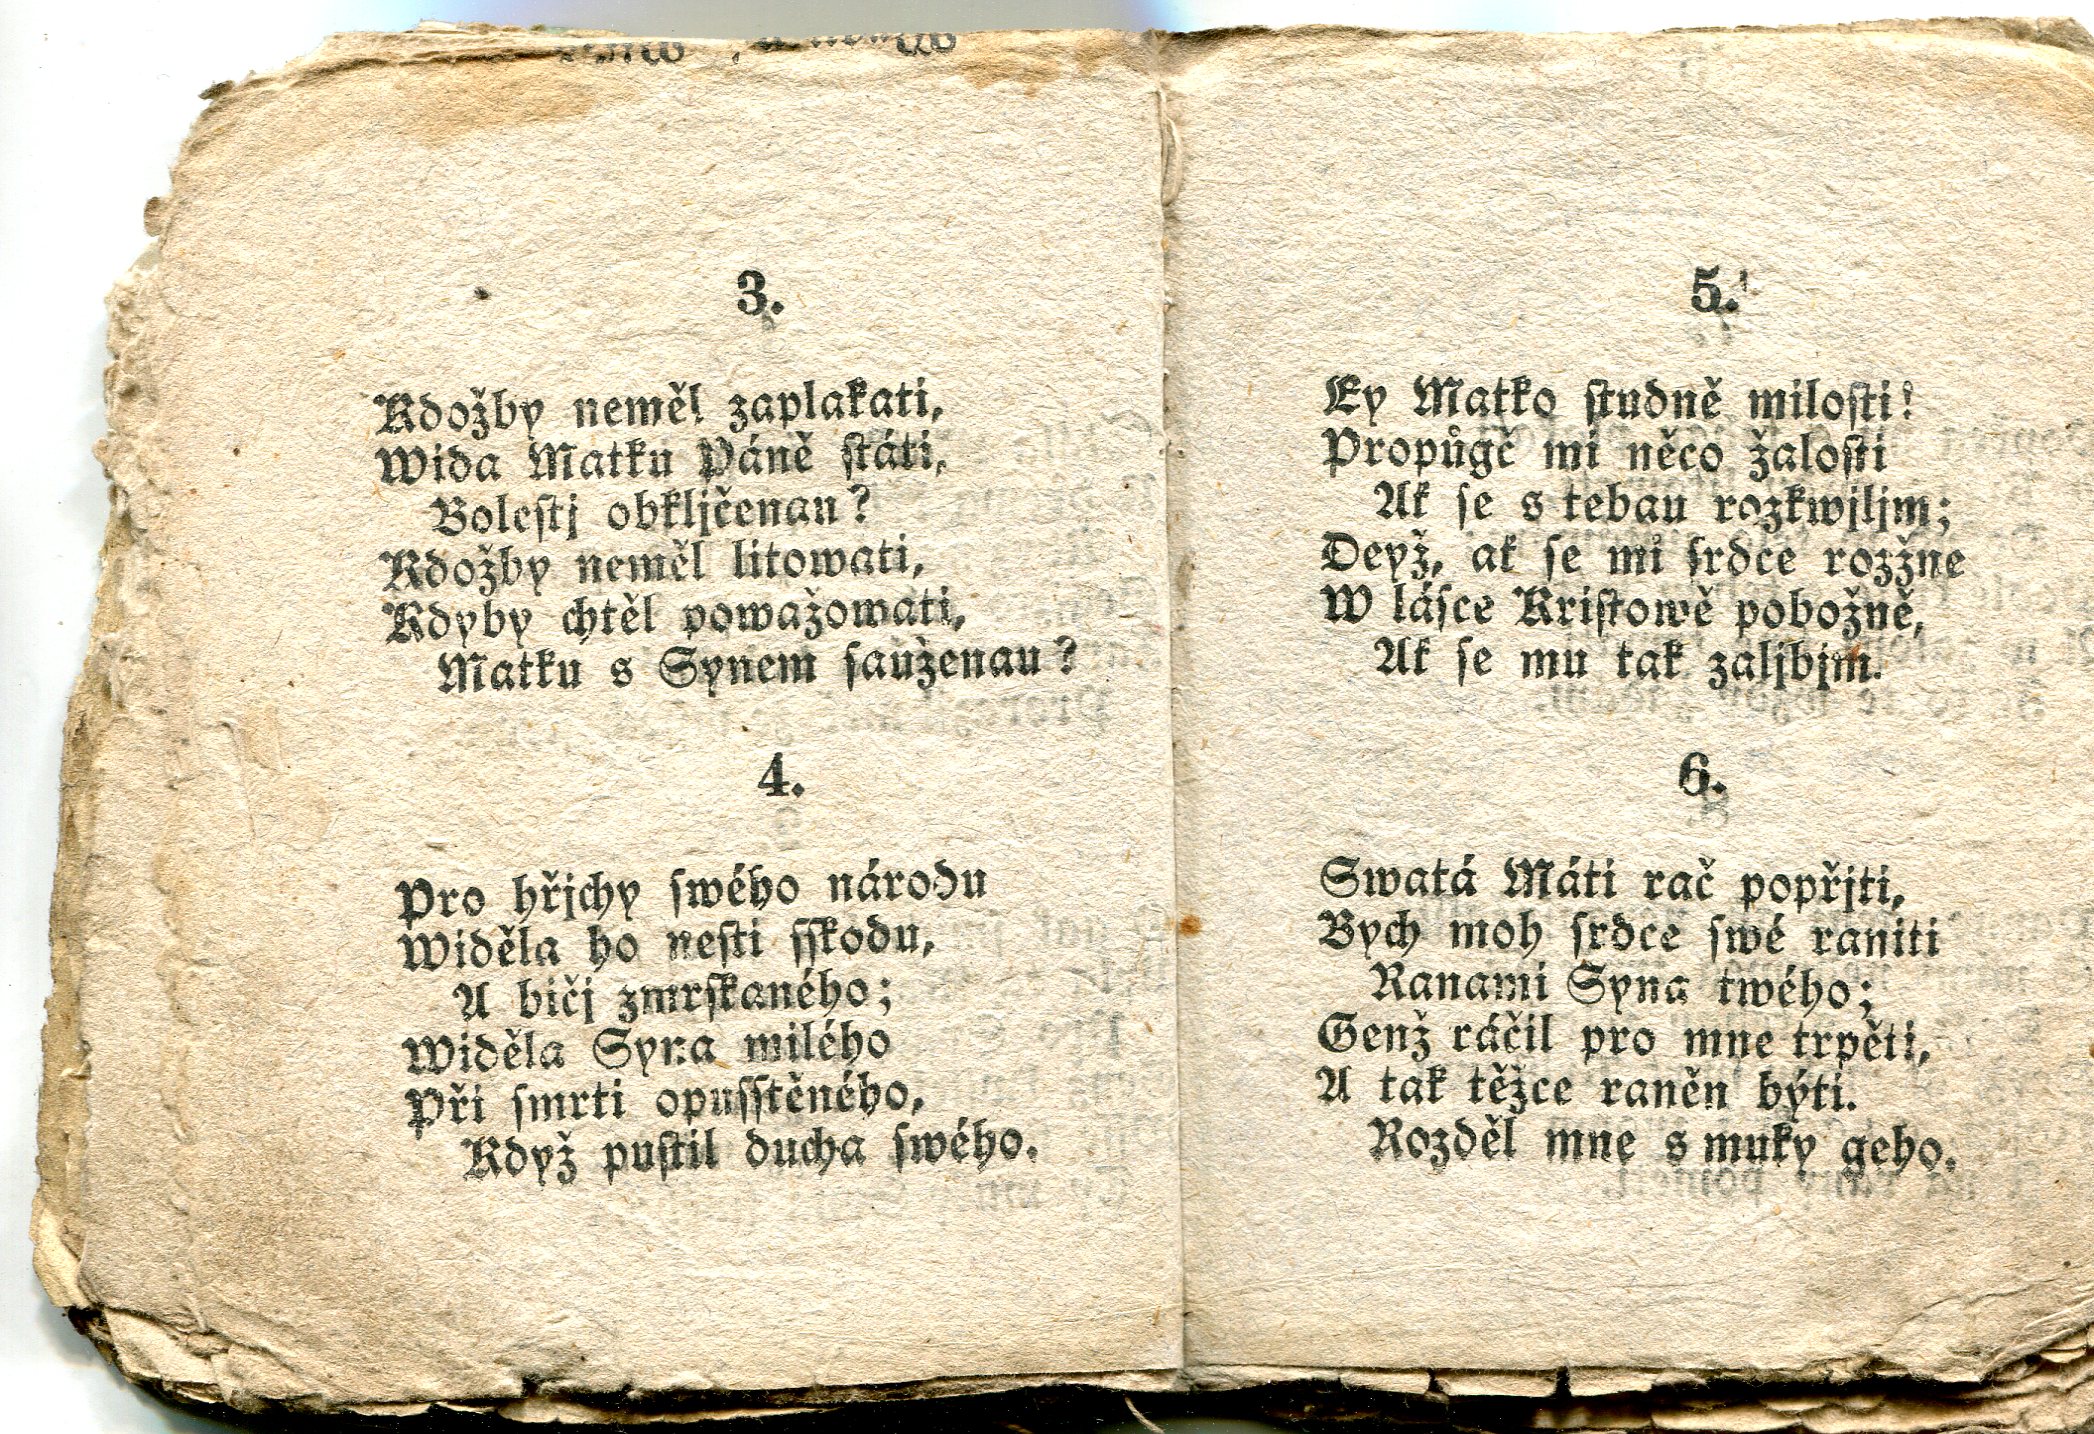 3.
Kdožby neměl zaplakati,
Wida Matku Páně státi,
Bolestj obkljčenau?
Kdožby neměl litowati,
Kdyby chtěl powažowati,
Matku s Synem saużenau?
4.
Pro hřjchy swého národu
Widěla ho nesti sskodu,
A bičj zmrskaného;
Widěla Syna milého
Při smrti opusstěného,
Když pustil ducha swého.
5.
Ey Matko studně milosti!
Propůgč mi něco žalosti
Ak se s tebau rozkwjljm;
Deyž, ak se mi srdce rozžne
W lásce Kristowě pobožně,
Ak se mu tak zaljbjm.
6.
Swatá Máti rač popřjti,
Bych moh srdce swé raniti
Ranami Syna twého;
Genž ráčil pro mne trpěti,
A tak těžce raněn býti.
Rozděl mne s muky geho.